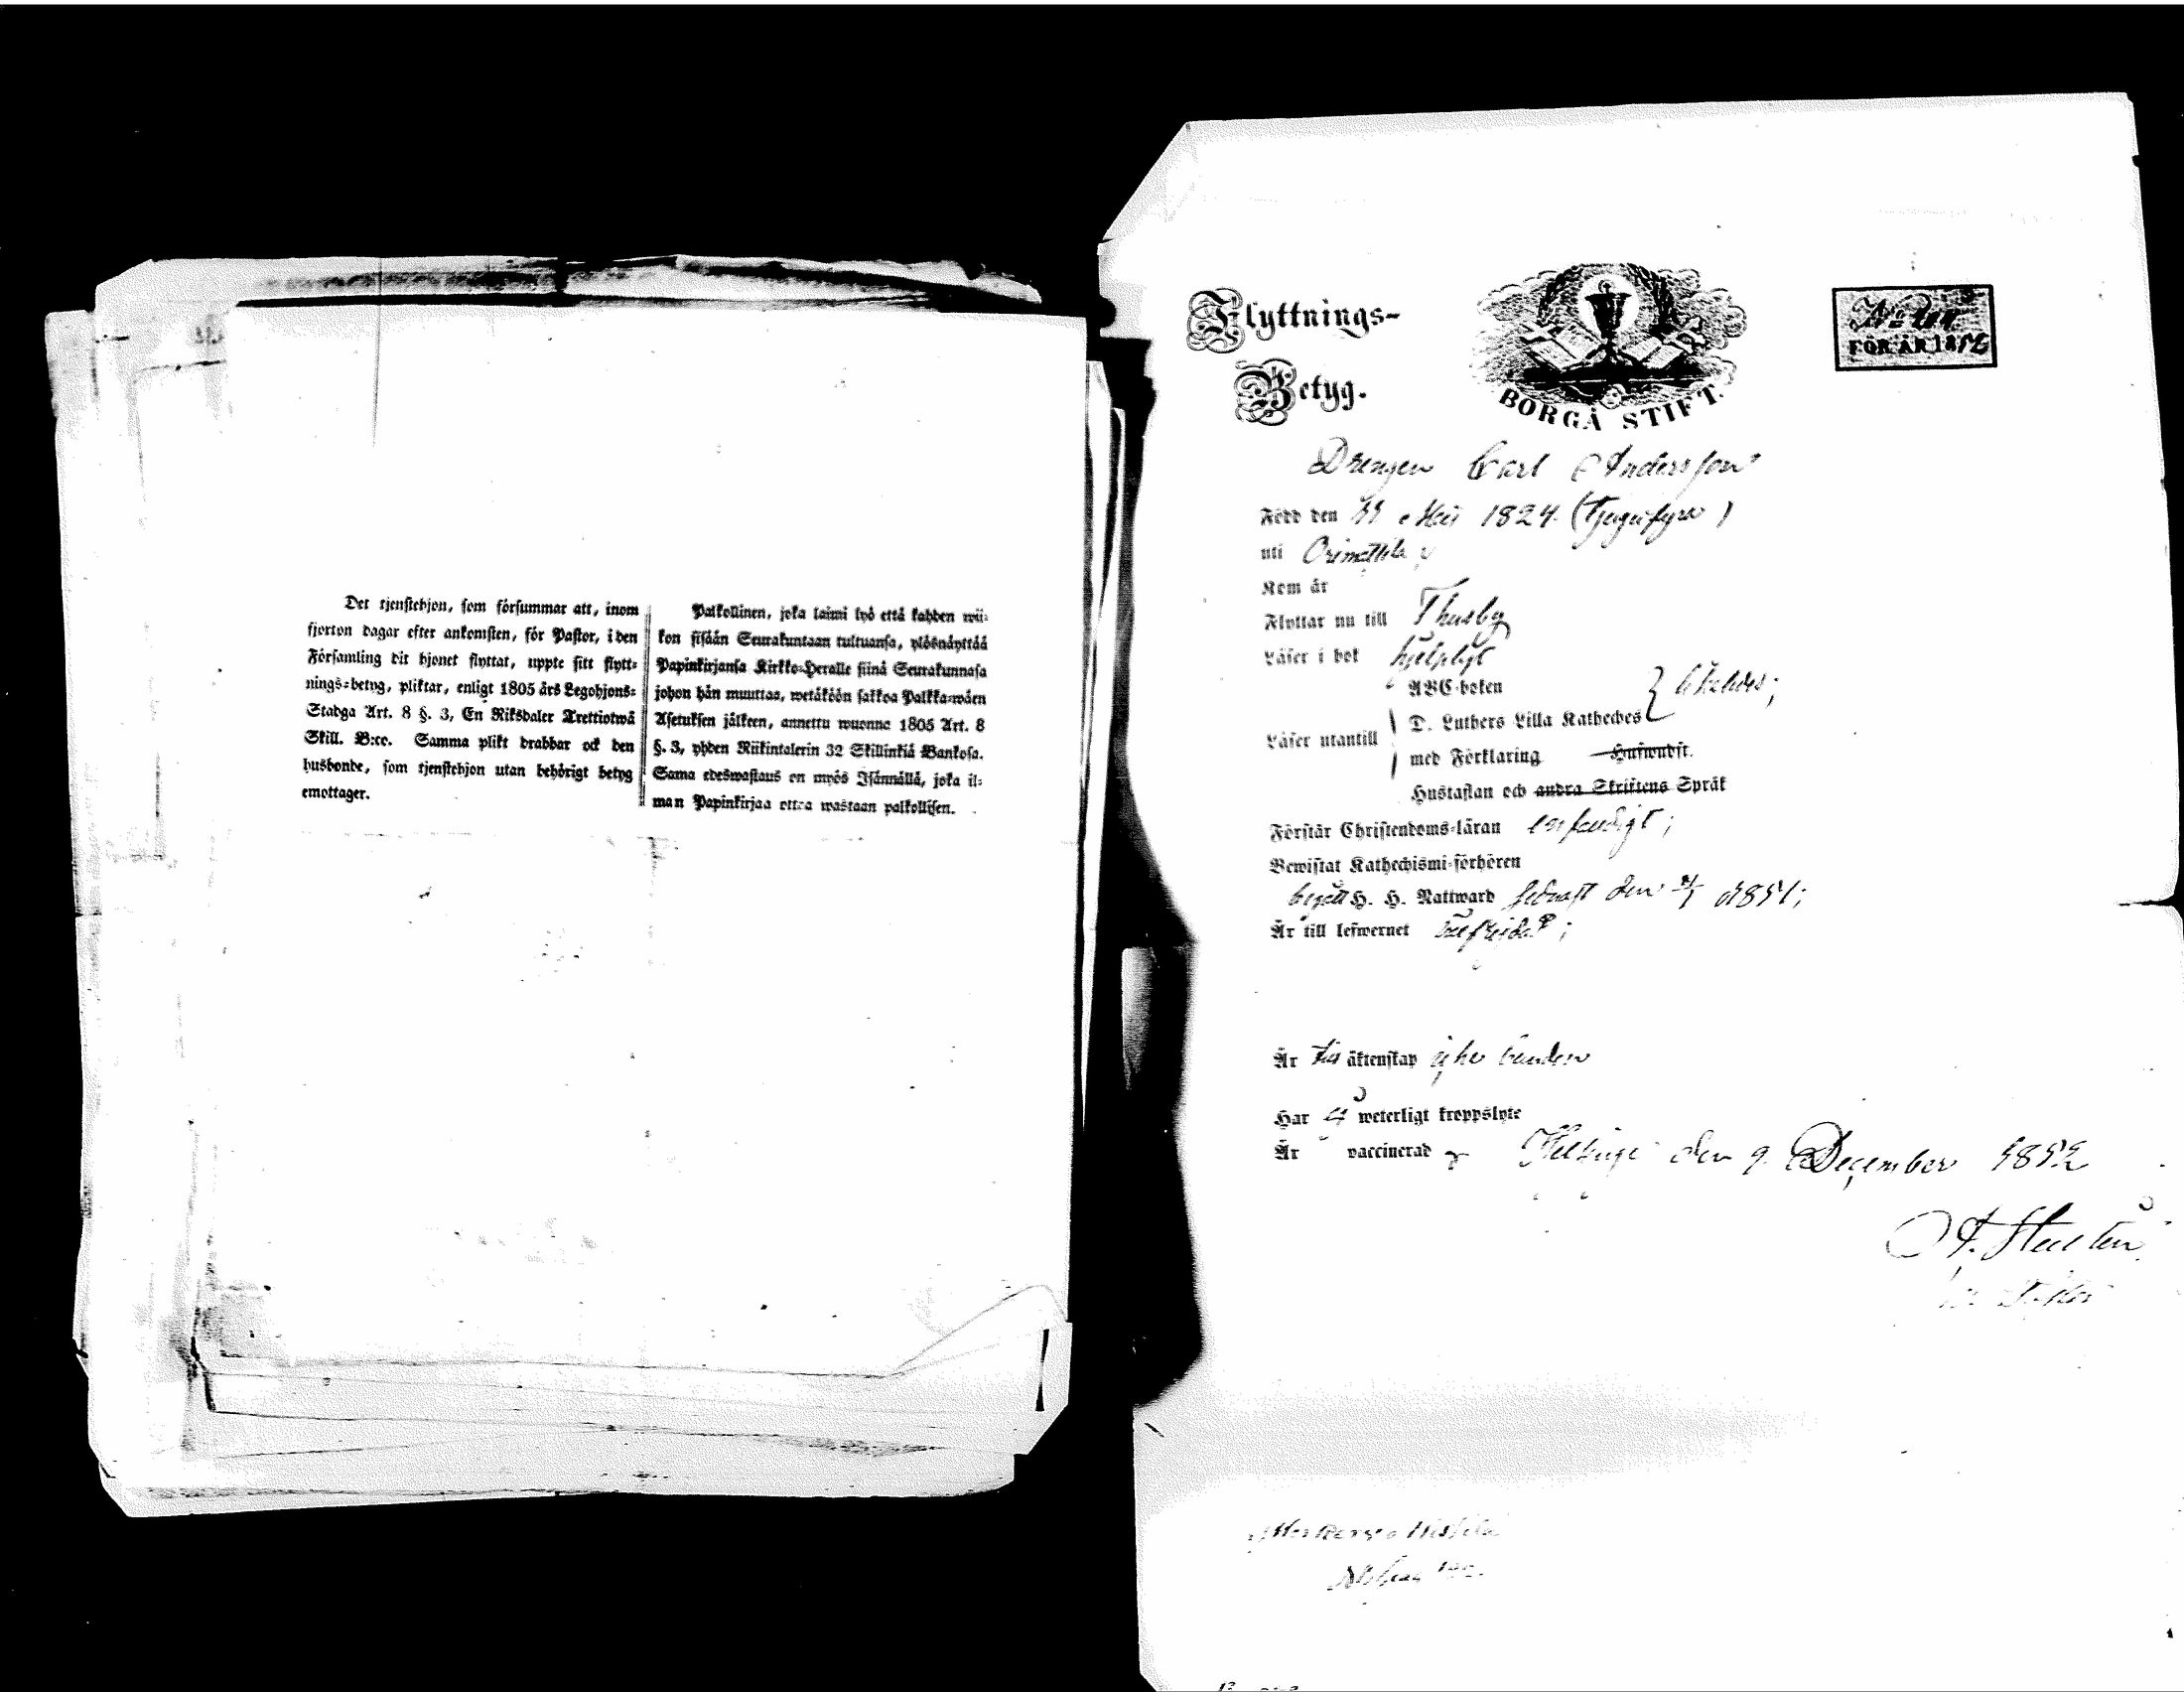 Det tjenstehjon, som försummar att, inom
fjorton dagar efter ankomsten, för Pastor, i den
Församling dit hjonet flyttat, uppte sitt flytt=
nings=betyg, pliktar, enligt 1805 års Legohjons=
Stadga Art. 8 §. 3, En Riksdaler Trettiotwå
Skill. B:co. Samma plikt drabbar ock den
husbonde, som tjenstehjon utan behörigt betyg
emottager.
Palkollinen, joka laimi lyö että kahden wii=
kon sisään Seurakuntaan tultuansa, ylösnäyttää
Papinkirjansa Kirkko=Herralle siinä Seurakunnasa
johon hän muuttaa, wetäköön sakkoa Palkka=wäen
Asetuksen jälkeen, annettu wuonna 1805 Art. 8
§. 3, yhden Riikintalerin 32 Skillinkiä Bankosa.
Sama edeswastaus on myös Isännällä, joka il=
man Papinkirjaa ottaa wastaan palkollisen.
Flyttnings-
Betyg.
BORGÅ STIFT.
FÖR ÅR 1852
Drengen Carl Andersson
Född den Maj 1824 (Tjugufyra)
uti Orimattila
Kom år
Flyttar nu till Thusby
Läser i bok hjelpligt
ABC-boken
Läser utantill D. Luthers Lilla Kateches
med Förklaring Huswudst.
Hustaflan och andra Skriftens Språk
Förstår Christendoms=läran enfaldigt;
Bewistat Kathechismi=förhören
begått H. H. Nattward sednast den 1851;
Är till lefwernet
Är till äktenskap ej bunden
Har ej weterligt kroppslyte
Är vaccinerad Helsinge den 9 December 1852